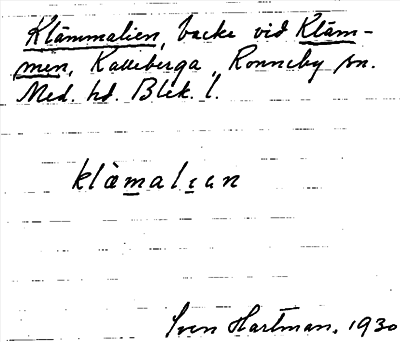 Klämmalien, backe vid Kläm-
men, Kalleberga, Ronneby sn.
Med. hd. Blek. l.
klàmalıan
Sven Hartman. 1930